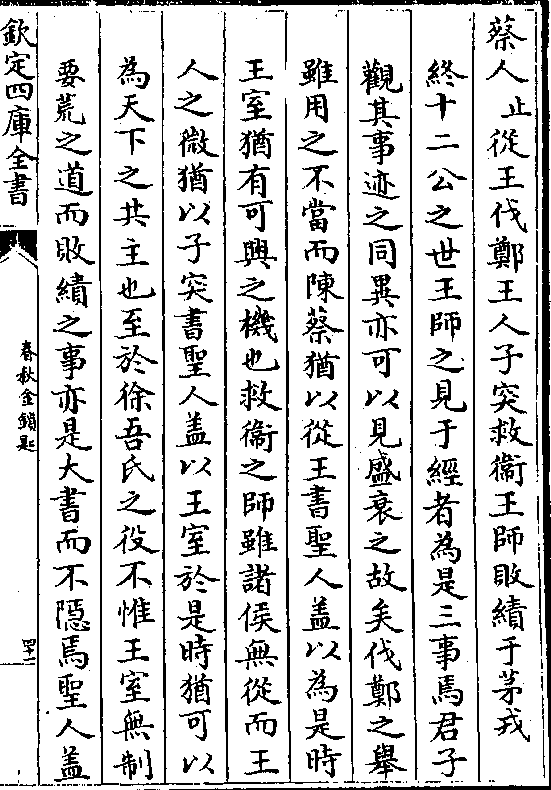 蔡人止從王伐鄭王人子突救衞王師敗績于茅戎
終十二公之世王師之見于經者為是三事焉君子
觀其事迹之同異亦可以見盛衰之故矣伐鄭之舉
雖用之不當而陳蔡猶以從王書聖人盖以為是時
王室猶有可興之機也救衞之師雖諸侯無從而王
人之微猶以子突書聖人盖以王室於是時猶可以
為天下之共主也至於徐吾氏之役不惟王室無制
要荒之道而敗績之事亦是大書而不隠焉聖人盖
欽定四庫全書
春秋金鎖匙
四十二